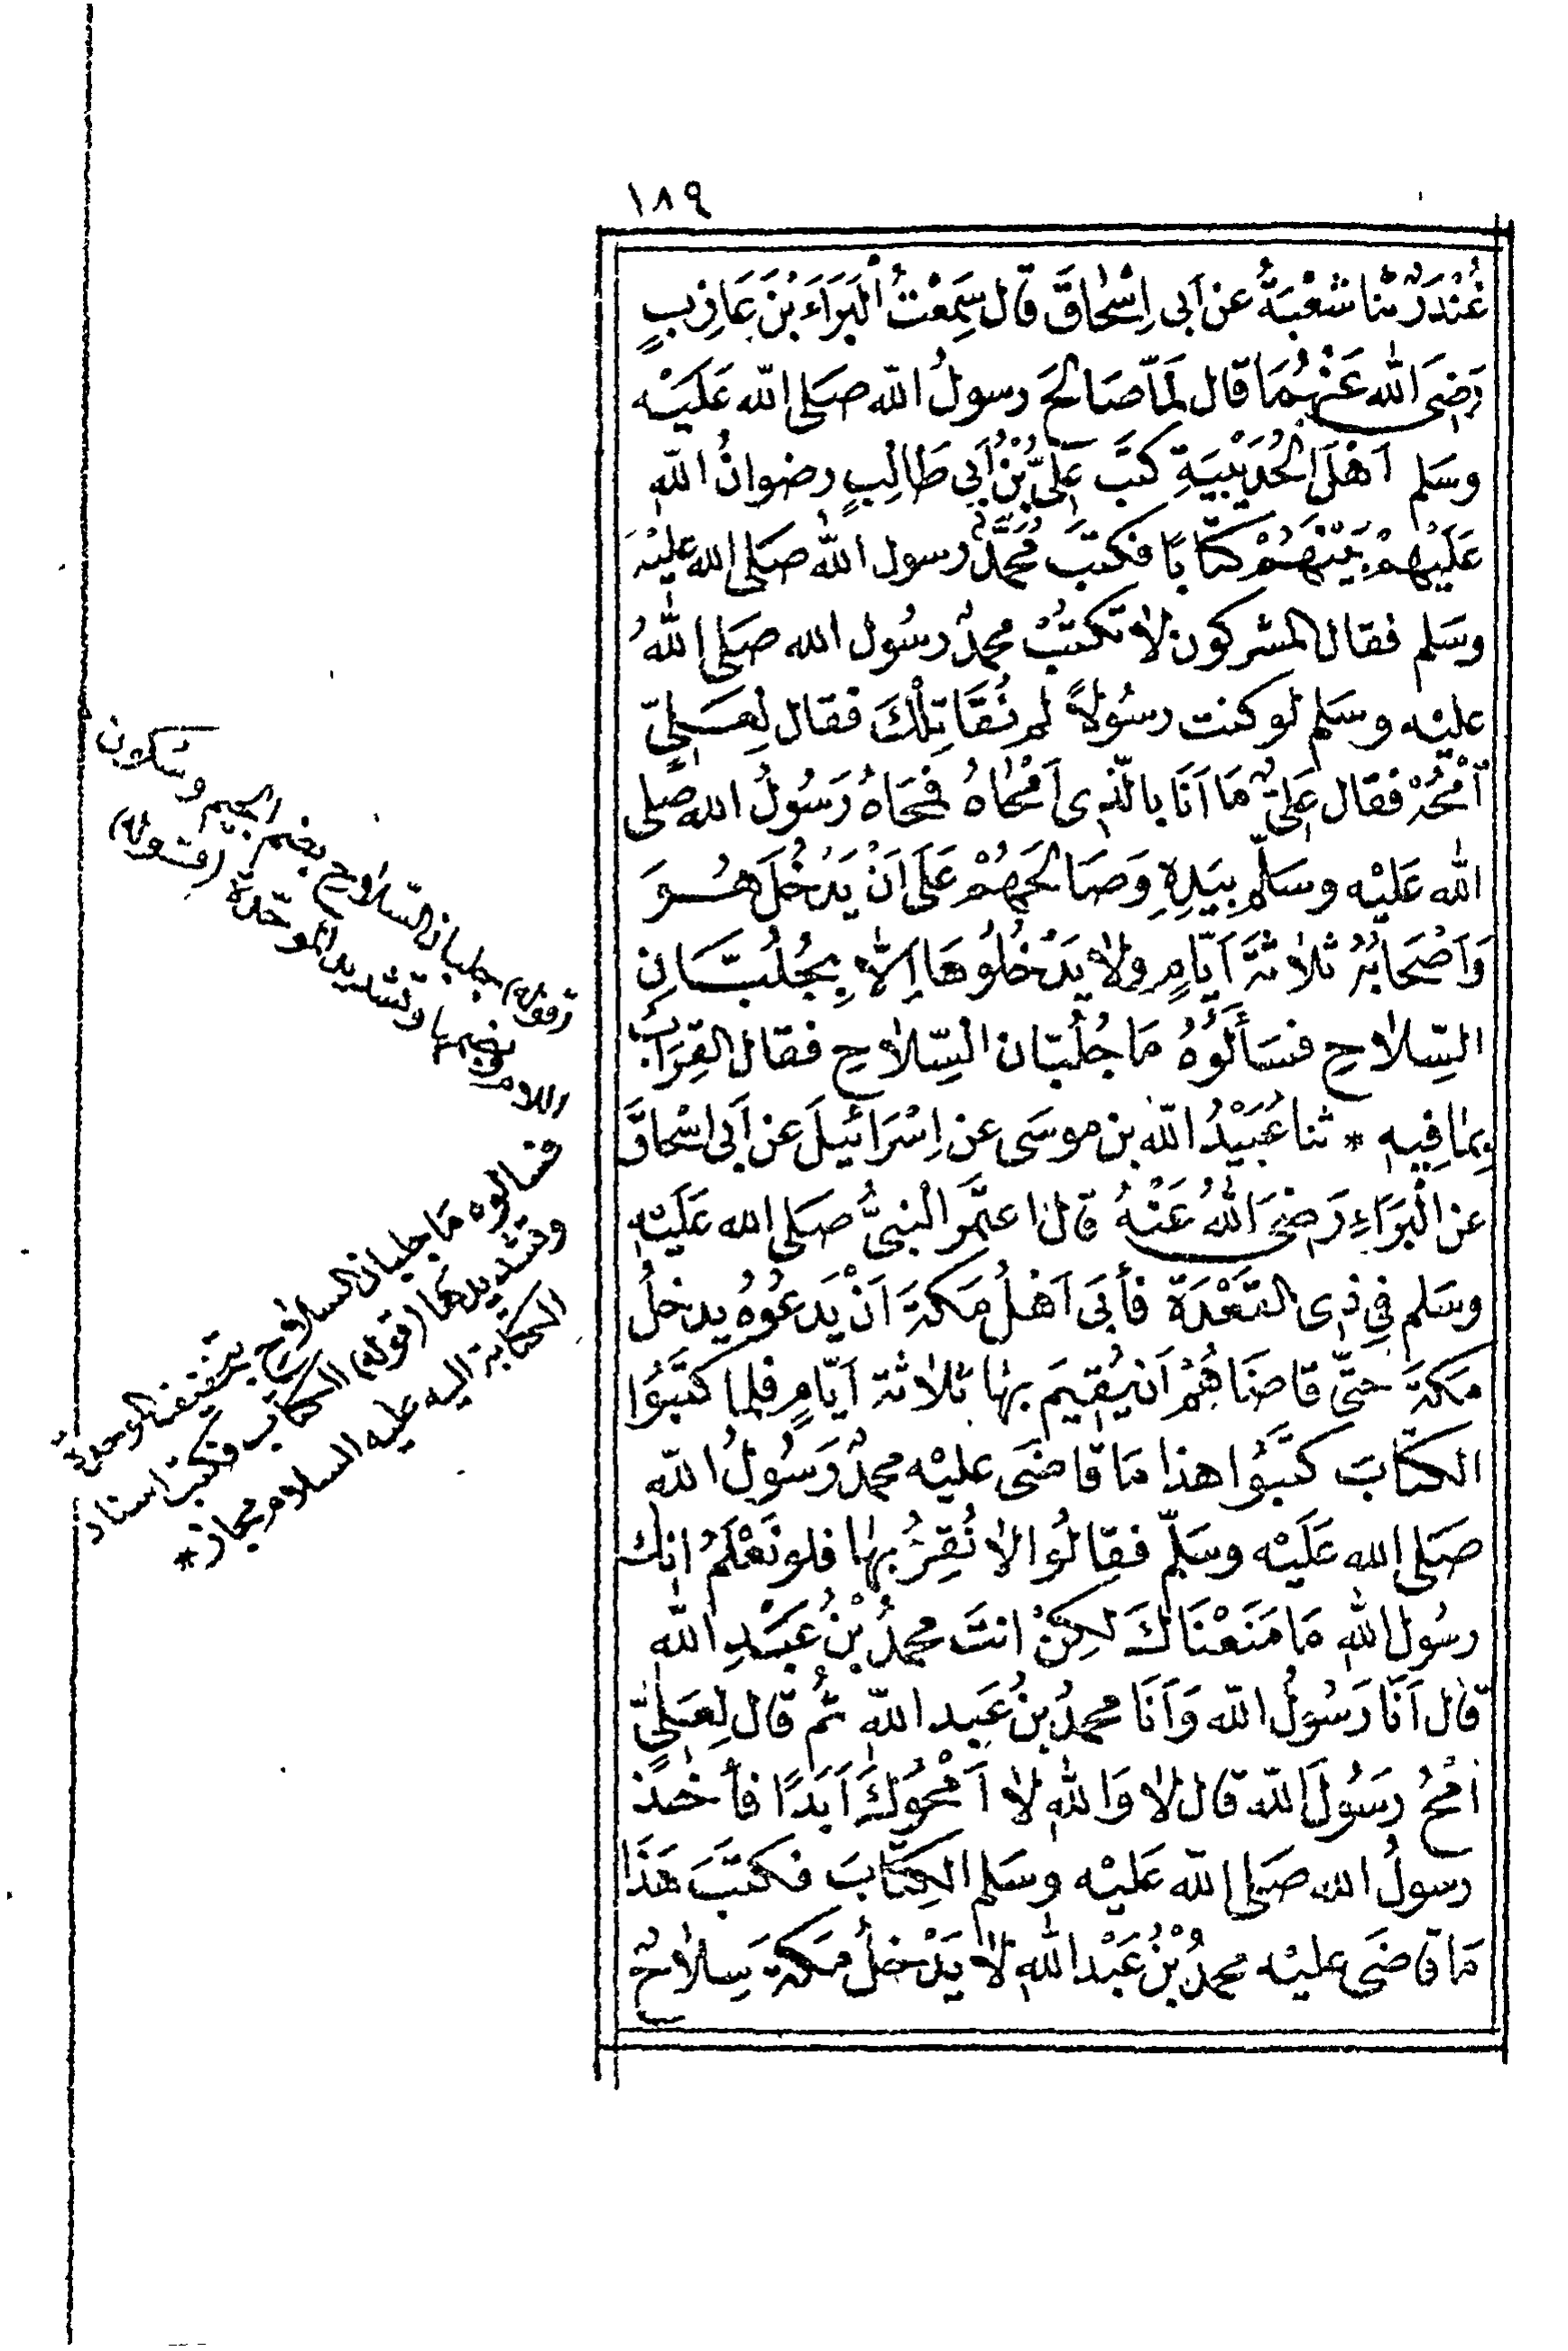 ١٨٩
غُنْدَرٌ ثنا شُعْبَةُ عن اَبى اِسْحٰاقَ قٰال سَمِعْتُ الْبَرَآءَ بْنَ عَازِبٍ
رَضِىَ اللّٰه عَنْهُمَا قٰال لَمّا صَالَحَ رسولُ اللّٰه صَلى اللّٰه عَلَيْه
وسَلم اَهْلَ الْحُدَيْبِيَةِ كَتَبَ عَلِىُّ بْنُ اَبى طَالِبٍ رضوانُ اللّٰه
عَلَيْهِمْ بَيْنَهُمْ كتَابًا فكتَبَ مُحَمَّدٌ رسول اللّٰه صَلى الله عليْه
وسَلم فقال المشركون لاٰ تكتُبْ محمدٌ رسُول الله صَلى اللّٰهُ
عليْه وسَلم لو كنت رسُولاً لم نُقَاتِلْكَ فقال لِعَلِىٍّ
اُمْحُهُ فقال عَلِىٌّ مَا اَنَا بالّذِى اَمْحٰاهُ فمَحَاهُ رَسُولُ الله صلى
اللّٰه عَلَيْه وسَلّم بِيَدِهِ وَصَالَحَهُمْ عَلَى اَنْ يَدْخُلَ هُوَ
وَاَصْحَابُهُ ثلاٰثَةَ اَيّامٍ ولاٰ يَدْخُلُوهَا اِلاّٰ بِجُلُبّانِ
السِّلاٰحِ فسَأَلُوهُ مَا جُلُبّان السِّلاٰحِ فقال القِرَابُ
بِمٰا فِيهِ * ثنا عُبَيْدُ اللّٰه بن موسَى عن اِسْرَائيلَ عن اَبى اسْحَاقَ
عن الْبَرَاءِ رَضِىَ اللّٰهُ عَنْهُ قال اعتمَرَ النبىُّ صَلى الله عَلَيْهِ
وسَلم فِى ذِى القَعْدَةِ فأَبَى اَهْلُ مَكةَ اَنْ يَدَعُوهُ يدخلُ
مَكةَ حتّى قاضَاهُمْ اَن يُقِيمَ بهٰا ثلاٰثة اَيّامٍ فلما كتَبُوا
الكتٰابَ كتَبُوا هذا مَا قاضَى عليْه محمدٌ رَسُولُ اللّٰه
صَلى اللّٰه عَلَيْه وسَلّم فقالُوا لاٰ نُقِرُّ بهٰا فلو نَعْلَمُ انك
رسُول اللّٰه مَا مَنَعْنَاكَ لكِنْ انتَ محمدُ بْنُ عَبْدِ اللّٰه
قال اَنَا رَسُولُ اللّٰه وَاَنَا محمدُ بنُ عَبد اللّٰه ثُم قال لِعَلىٍّ
اُمْحُ رَسُولَ اللّٰه قال لاٰ وَاللّٰهِ لاٰ اَمْحُوكَ اَبَدًا فأَخذ
رسولُ الله صَلى اللّٰه عَليْه وسَلم الكِتٰابَ فكتَبَ هَذا
مَا قاضَى عليْه محمدُ بْنُ عَبْدِ اللّٰهِ لاٰ يَدْخلُ مَكةَ سِلاٰحٌ
(قوله) جلبان السّلاٰح بضم الجيم وسكون
اللام وبضمها وتشديد الموحّدة (قوله)
فسالوه مَا جلبان السلاٰح بتخفيف الموحدة
وتشديدها (قوله) الكتاب فكتب اسناد
الكتابة اليه عليه السلام مجاز *